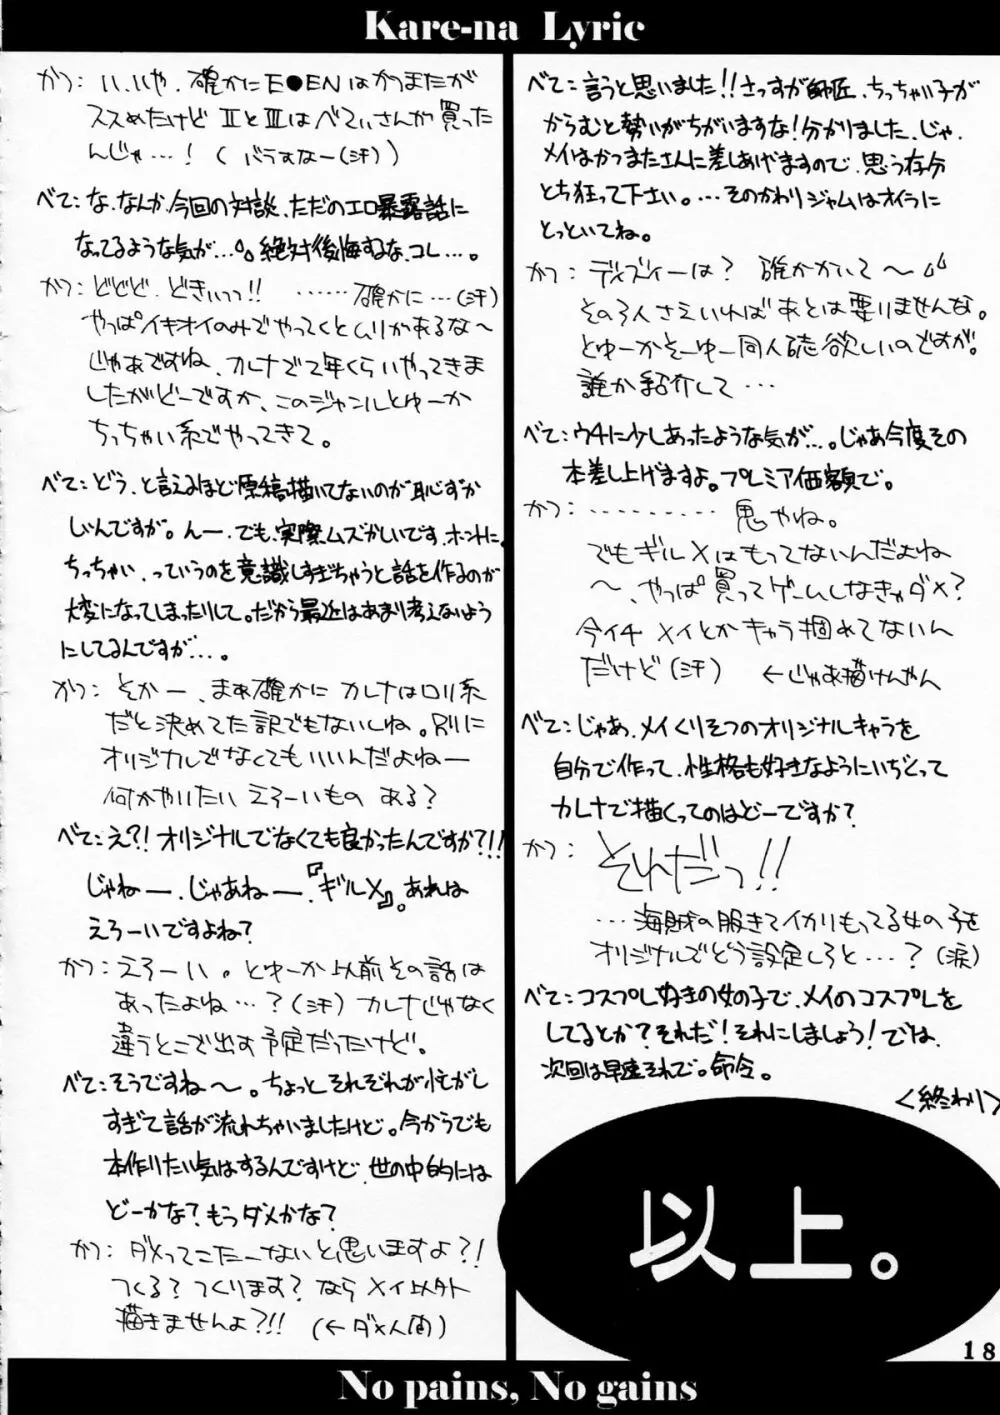 Kare-na Lyric
かつ：い、いや、確かにE●ENはかつまたが
ススめたけどⅡとⅢはべてぃさんが買った
んじゃ…！（バラすなー(汗)）
べて：な、なんか、今回の対談、ただのエロ暴露話に
なってるような気が…。絶対後悔するな、コレ…。
かつ：どどど、どきぃっっ!! ……確かに…(汗)
やっぱイキオイのみでやってくとムリがあるな〜
じゃあですね、カレナで1年くらいやってきま
したがどーですか、このジャンルとゆーか
ちっちゃい系でやってきて。
べて：どう、と言えるほど原稿描いてないのが恥ずか
しいんですが。んー、でも、実際ムズかしいです、ホントに。
ちっちゃい、っていうのを意識しすぎちゃうと話を作るのが
大変になってしまったりして。だから最近はあまり考えないよう
にしてるんですが…。
かつ：そかー、まぁ確かにカレナはロリ系
だと決めてた訳でもないしね。別に
オリジナルでなくてもいいんだよねー
何かやりたいえろーいものある？
べて：え?!オリジナルでなくても良かったんですか?!!
じゃねー、じゃあねー、『ギルX』。あれは
えろーいですよね？
かつ：えろーい。とゆーか以前その話は
あったよね…？(汗)カレナじゃなく
違うとこで出す予定だったけど。
べて：そうですね〜。ちょっとそれぞれが忙がし
すぎて話が流れちゃいましたけど。今からでも
本作りたい気はするんですけど、世の中的には
どーかな？もうダメかな？
かつ：ダメってこたーないと思いますよ?!
つくる？つくります？ならメイ以外
描きませんよ?!!（←ダメ人間）
べて：言うと思いました!!さっすが師匠、ちっちゃい子が
からむと勢いがちがいますな！分かりました、じゃ、
メイはかつまたさんに差しあげますので、思う存分
とち狂って下さい。…そのかわりジャムはオイラに
とっといてね。
かつ：ディズィーは？確かかいて〜
その3人さえいればあとは要りませんな。
とゆーかそーゆー同人誌欲しいのですが。
誰か紹介して…
べて：ウチに少しあったような気が…。じゃあ今度その
本差し上げますよ。プレミア価額で。
かつ：………鬼やね。
でもギルXはもってないんだよね
〜、やっぱ買ってゲームしなきゃダメ？
今イチ メイとかキャラ掴めてないん
だけど(汗) ←じゃあ描けんやん
べて：じゃあ、メイくりそつのオリジナルキャラを
自分で作って、性格も好きなようにいぢくって
カレナで描くってのはどーですか？
かつ：それだっ!!
…海賊の服きてイカリもってる女の子を
オリジナルでどう設定しろと…？(涙)
べて：コスプレ好きの女の子で、メイのコスプレを
してるとか？それだ！それにしましょう！では、
次回は早速それで。命令。
＜終わり＞
以上。
18
No pains, No gains